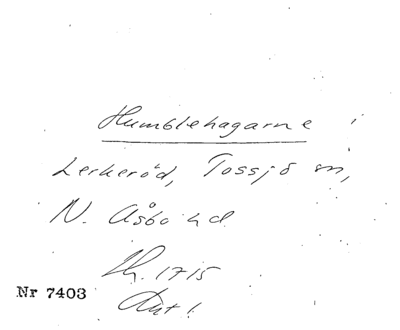 Humblehagarne i
Lerkeröd, Tossjö sn,
N. Åsbo hd
1715
Nr 7403